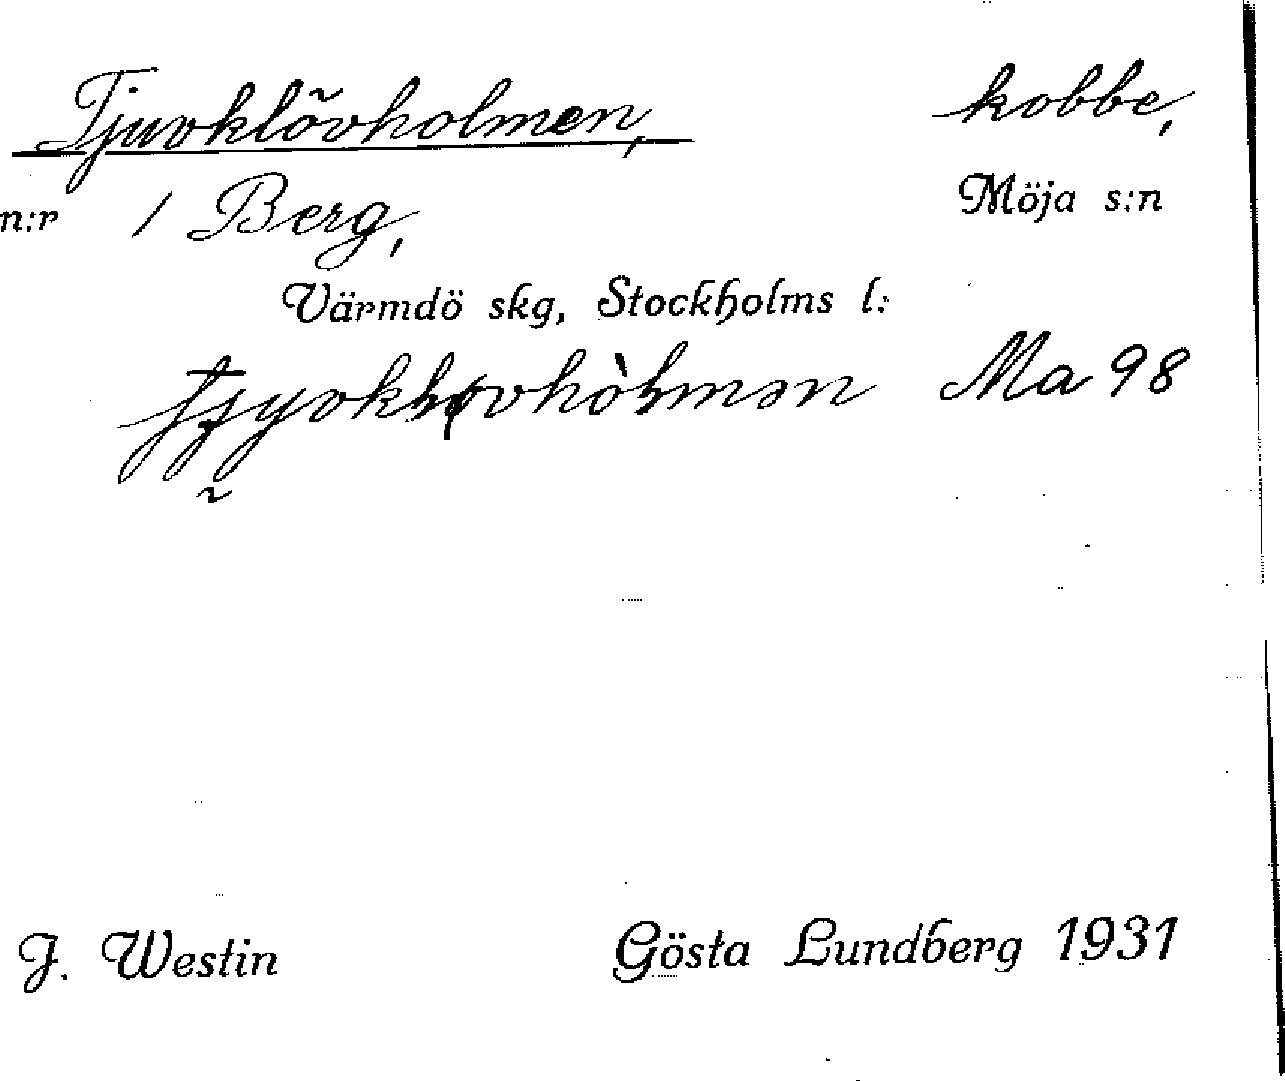 Tjuvklövholmen, kobbe,
n:r 1 Berg, Möja s:n
Värmdö skg, Stockholms l:
Ma 98
J. Westin Gösta Lundberg 1931